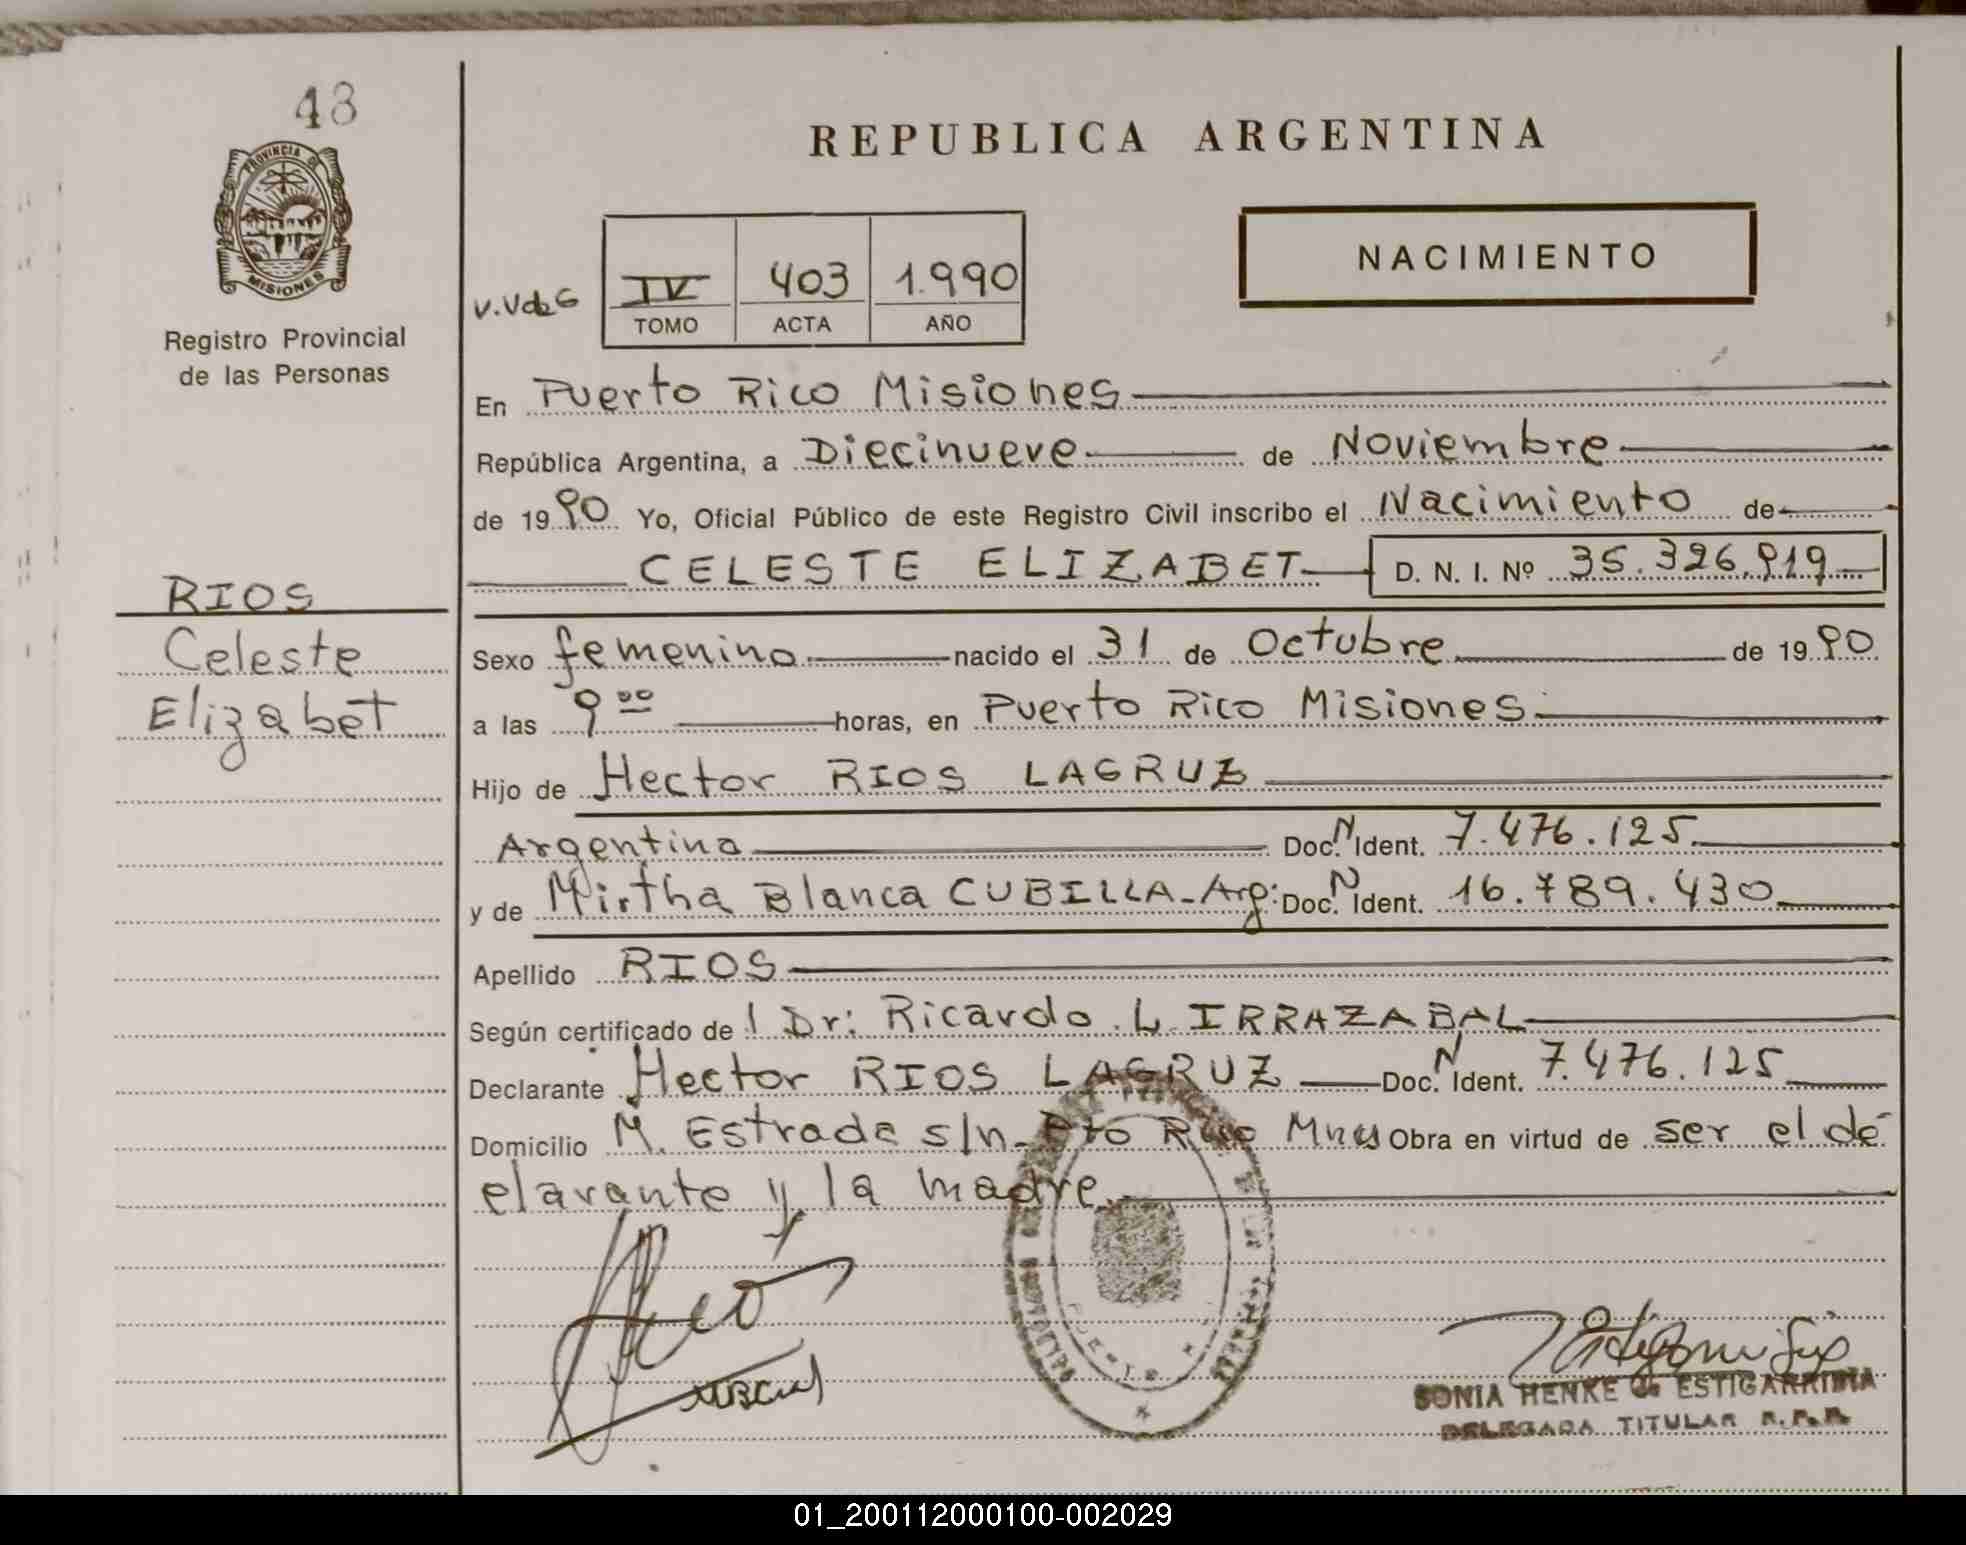 48
PROVINCIA DE
MISIONES
Registro Provincial
de las Personas
RIOS
Celeste
Elizabet
REPUBLICA ARGENTINA
NACIMIENTO
IV 403 1.990
TOMO ACTA AÑO
En Puerto Rico Misiones
República Argentina, a Diecinueve de Noviembre
de 1990 Yo, Oficial Público de este Registro Civil inscribo el Nacimiento de
CELESTE ELIZABET D. N. I. Nº 35.326.919
Sexo femenino nacido el 31 de Octubre de 1990
a las 9 00 horas, en Puerto Rico Misiones
Hijo de Hector RIOS LAGRUZ
Argentino Doc. N Ident. 7.476.125
y de Mirtha Blanca CUBILLA-Arg: Doc. N Ident. 16.789.430
Apellido RIOS
Según certificado de l Dr: Ricardo L IRRAZABAL
Declarante Hector RIOS LAGRUZ Doc. N Ident. 7.476.125
Domicilio M. Estrada s/n- Pto Rico Mnes Obra en virtud de ser el dé
clarante y la madre
SONIA HENKE de ESTIGARRIBIA
DELEGADA TITULAR R.P.P.
01_200112000100-002029